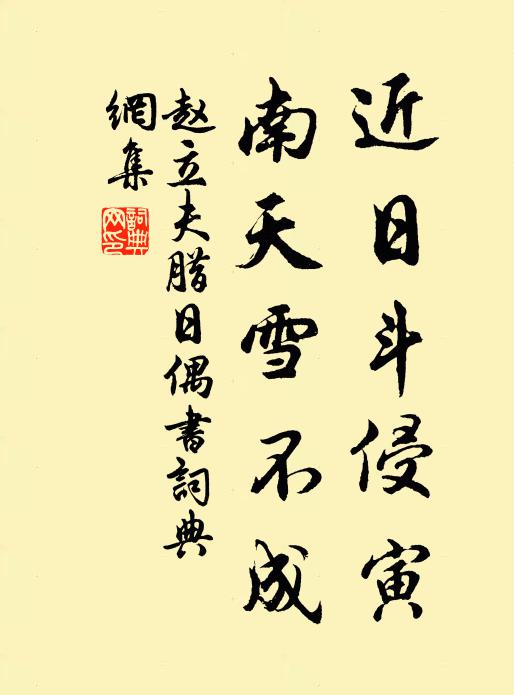 近日斗侵寅
南天雪不成
赵立夫腊日偶書詞典
網集
詞典
网印